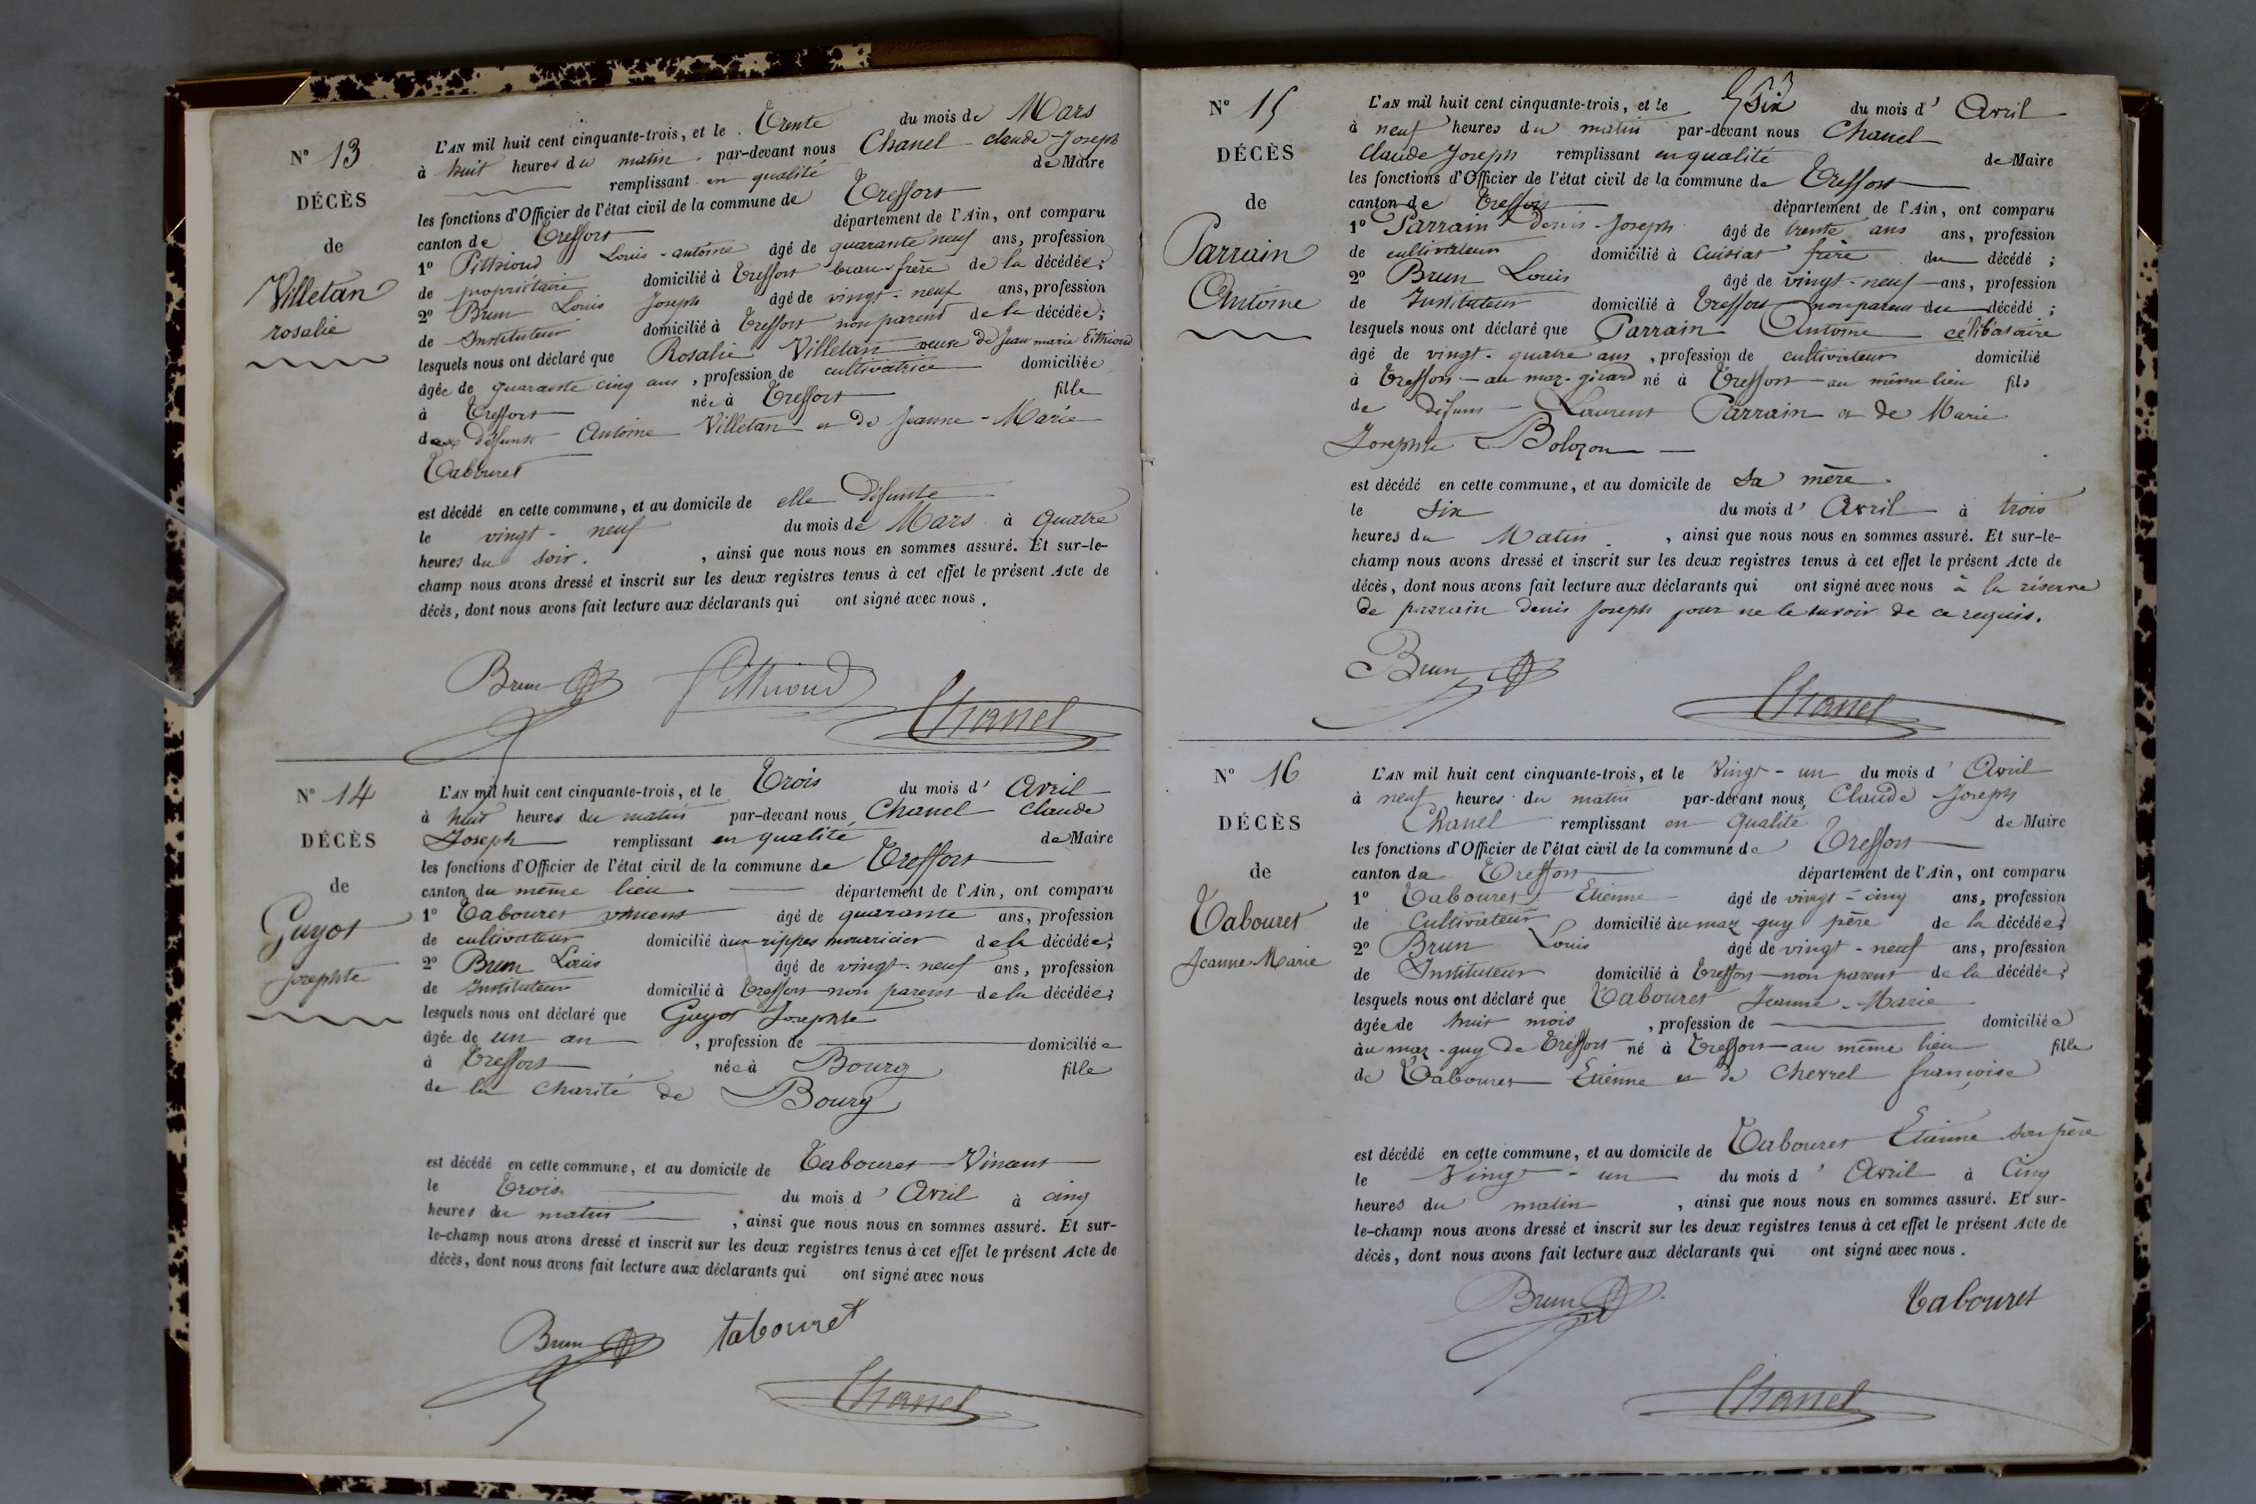 N° 13
DÉCÈS
de
Villetan
rosalie
L'AN mil huit cent cinquante-trois, et le Trente du mois de Mars
à huit heures du matin par-devant nous Chanel Claude Joseph
remplissant en qualité de Maire
les fonctions d'Officier de l'état civil de la commune de Treffort
canton de Treffort département de l'Ain, ont comparu
1° Pithioud Louis-antoine âgé de quarante neuf ans, profession
de propriétaire domicilié à Treffort beau-frère de la décédée;
2° Brun Louis Joseph âgé de vingt-neuf ans, profession
de Instituteur domicilié à Treffort non parent de la décédée;
lesquels nous ont déclaré que Rosalie Villetan veuve de Jean marie Pithioud
âgée de quarante cinq ans, profession de cultivatrice domiciliée
à Treffort née à Treffort fille
des défunts Antoine Villetan et de Jeanne-Marie
Tabouret
est décédé en cette commune, et au domicile de elle défunte
le vingt-neuf du mois de Mars à quatre
heures du soir. , ainsi que nous nous en sommes assuré. Et sur-le-
champ nous avons dressé et inscrit sur les deux registres tenus à cet effet le présent Acte de
décès, dont nous avons fait lecture aux déclarants qui ont signé avec nous.
Brun Pithioud
Chanel
N° 14
DÉCÈS
de
Guyot
Josephte
L'AN mil huit cent cinquante-trois, et le Trois du mois d'Avril
à huit heures du matin par-devant nous Chanel Claude
Joseph remplissant en qualité de Maire
les fonctions d'Officier de l'état civil de la commune de Treffort
canton du même lieu département de l'Ain, ont comparu
1° Tabouret vincent âgé de quarante ans, profession
de cultivateur domicilié aux rippes nourricier de la décédée;
2° Brun Louis âgé de vingt-neuf ans, profession
de Instituteur domicilié à Treffort non parent de la décédée;
lesquels nous ont déclaré que Guyot Josephte
âgée de un an , profession de domiciliée
à Treffort née à Bourg fille
de la charité de Bourg
est décédé en cette commune, et au domicile de Tabouret Vincent
le trois du mois d'Avril à cinq
heures du matin , ainsi que nous nous en sommes assuré. Et sur-
le-champ nous avons dressé et inscrit sur les deux registres tenus à cet effet le présent Acte de
décès, dont nous avons fait lecture aux déclarants qui ont signé avec nous
Brun tabouret
Chanel
N° 15
DÉCÈS
de
Parrain
Antoine
L'AN mil huit cent cinquante-trois, et le Six du mois d'Avril
à neuf heures du matin par-devant nous Chanel
Claude Joseph remplissant en qualité de Maire
les fonctions d'Officier de l'état civil de la commune de Treffort
canton de Treffort département de l'Ain, ont comparu
1° Parrain Denis Joseph âgé de trente ans ans, profession
de cultivateur domicilié à Cuisiat frère du décédé;
2° Brun Louis âgé de vingt-neuf ans, profession
de Instituteur domicilié à Treffort non parent du décédé;
lesquels nous ont déclaré que Parrain Antoine célibataire
âgé de vingt-quatre ans, profession de cultivateur domicilié
à Treffort au maz-girard né à Treffort au même lieu fils
de défunt Laurent Parrain et de Marie
Josephte Bolozon
est décédé en cette commune, et au domicile de sa mère
le Six du mois d'Avril à trois
heures du Matin , ainsi que nous nous en sommes assuré. Et sur-le-
champ nous avons dressé et inscrit sur les deux registres tenus à cet effet le présent Acte de
décès, dont nous avons fait lecture aux déclarants qui ont signé avec nous à la réserve
de parrain denis Joseph pour ne le savoir de ce requis.
Brun
Chanel
N° 16
DÉCÈS
de
Tabouret
Jeanne-Marie
L'AN mil huit cent cinquante-trois, et le Vingt-un du mois d'Avril
à neuf heures du matin par-devant nous Claude Joseph
Chanel remplissant en Qualité de Maire
les fonctions d'Officier de l'état civil de la commune de Treffort
canton de Treffort département de l'Ain, ont comparu
1° Tabouret Etienne âgé de vingt-cinq ans, profession
de Cultivateur domicilié au maz-guy père de la décédée;
2° Brun Louis âgé de vingt-neuf ans, profession
de Instituteur domicilié à Treffort non parent de la décédée;
lesquels nous ont déclaré que Tabouret Jeanne-Marie
âgée de huit mois , profession de domiciliée
au maz-guy de Treffort né à Treffort au même lieu fille
de Tabouret Etienne et de Chevrel françoise
est décédé en cette commune, et au domicile de Tabouret Etienne son père
le Vingt-un du mois d'Avril à Cinq
heures du matin , ainsi que nous nous en sommes assuré. Et sur-
le-champ nous avons dressé et inscrit sur les deux registres tenus à cet effet le présent Acte de
décès, dont nous avons fait lecture aux déclarants qui ont signé avec nous.
Brun Tabouret
Chanel